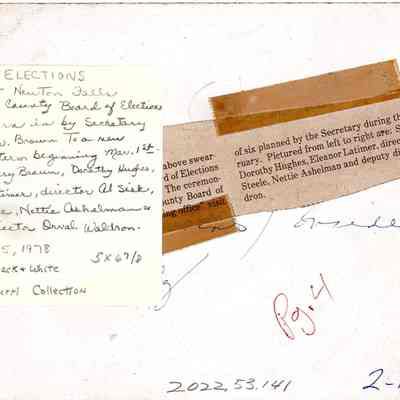 ELECTIONS
Newton Falls
County Board of Elections
in by Secretary
Brown To a new
term beginning Mar. 1st-
Brown, Dorothy Hughes,
director Al Sisk,
Nettie Ashelman &
Orval Waldron.
5, 1978
& White 5 x 6 7/8
Collection
above swear-
d of Elections
The ceremon-
unty Board of
ing office" visit
of six planned by the Secretary during th
ruary. Pictured from left to right are: S
Dorothy Hughes, Eleanor Latimer, direc
Steele, Nettie Ashelman and deputy di
dron.
Pg. 4
2022.53.141
2-